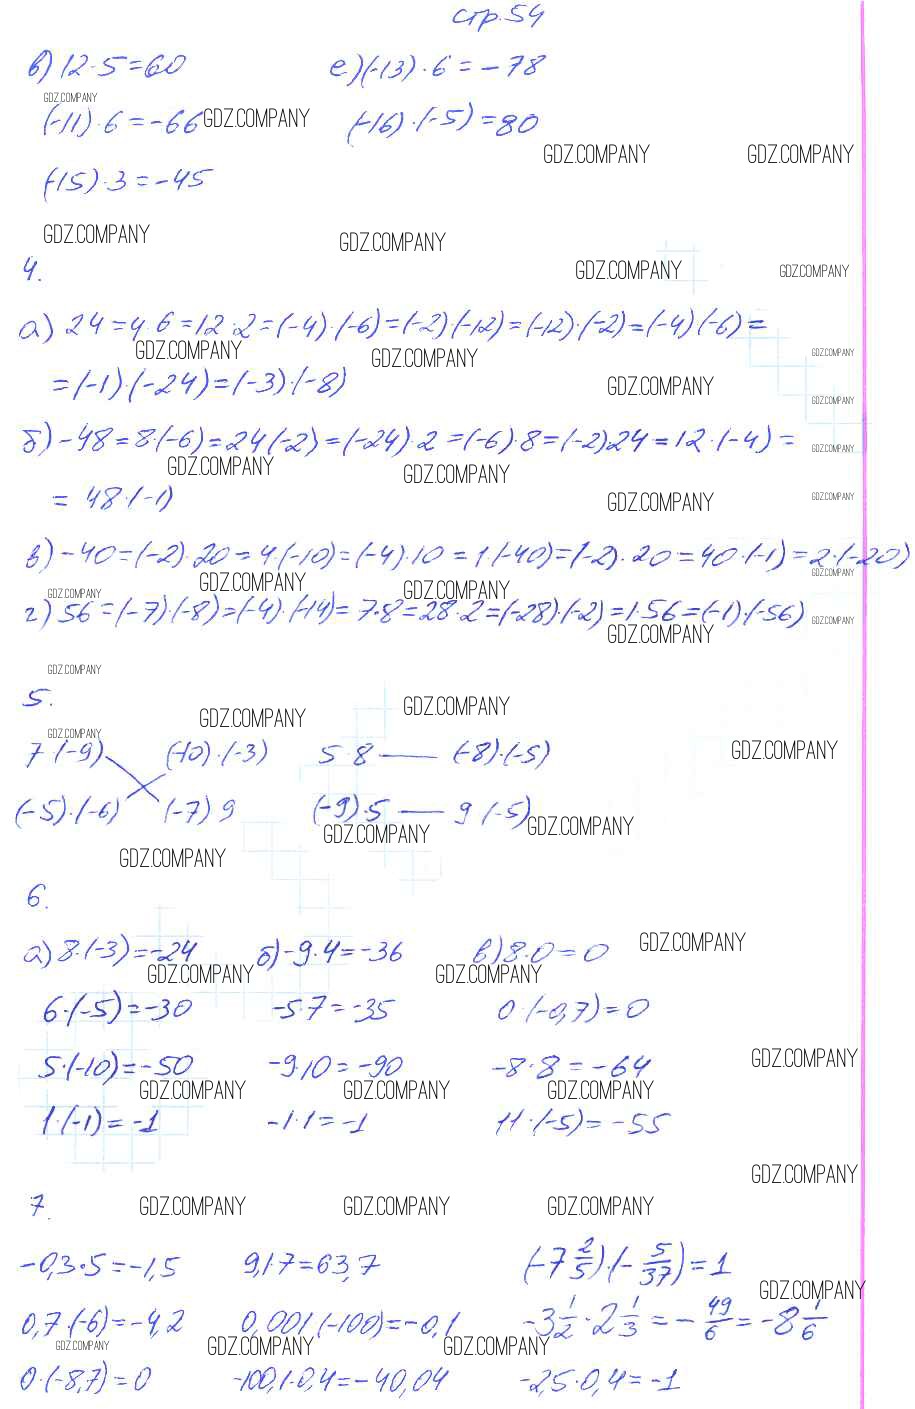 стр. 54
в) 12·5=60 е) (-13)·6=-78
GDZ.COMPANY
(-11)·6=-66 GDZ.COMPANY (-16)·(-5)=80
GDZ.COMPANY GDZ.COMPANY
(-15)·3=-45
GDZ.COMPANY GDZ.COMPANY
4. GDZ.COMPANY GDZ.COMPANY
а) 24=4·6=12·2=(-4)·(-6)=(-2)(-12)=(-12)·(-2)=(-4)(-6)=
GDZ.COMPANY GDZ.COMPANY GDZ.COMPANY
=(-1)·(-24)=(-3)·(-8) GDZ.COMPANY GDZ.COMPANY
б) -48=8·(-6)=24(-2)=(-24)·2=(-6)·8=(-2)24=12·(-4)=
GDZ.COMPANY GDZ.COMPANY GDZ.COMPANY
= 48·(-1) GDZ.COMPANY GDZ.COMPANY
в) -40=(-2)·20=4·(-10)=(-4)·10=1·(-40)=(-2)·20=40·(-1)=2·(-20)
GDZ.COMPANY GDZ.COMPANY GDZ.COMPANY GDZ.COMPANY
г) 56=(-7)·(-8)=(-4)·(-14)=7·8=28·2=(-28)·(-2)=1·56=(-1)·(-56) GDZ.COMPANY
GDZ.COMPANY
GDZ.COMPANY
5. GDZ.COMPANY GDZ.COMPANY
GDZ.COMPANY
7·(-9) (-10)·(-3) 5·8 — (-8)·(-5) GDZ.COMPANY
(-5)·(-6) (-7)9 (-9)·5 — 9(-5) GDZ.COMPANY
GDZ.COMPANY
GDZ.COMPANY
6.
а) 8·(-3)=-24 б) -9·4=-36 в) 8·0=0 GDZ.COMPANY
GDZ.COMPANY GDZ.COMPANY
6·(-5)=-30 -5·7=-35 0·(-0,7)=0
5·(-10)=-50 -9·10=-90 -8·8=-64 GDZ.COMPANY
GDZ.COMPANY GDZ.COMPANY GDZ.COMPANY
1·(-1)=-1 -1·1=-1 11·(-5)=-55
GDZ.COMPANY
7. GDZ.COMPANY GDZ.COMPANY GDZ.COMPANY
-0,3·5=-1,5 9,1·7=63,7 (-7 2/5)·(-5/37)=1
GDZ.COMPANY
0,7·(-6)=-4,2 0,001(-100)=-0,1 -3 1/2·2 1/3=-49/6=-8 1/6
GDZ.COMPANY GDZ.COMPANY GDZ.COMPANY
0·(-8,7)=0 -100,1·0,4=-40,04 -2,5·0,4=-1